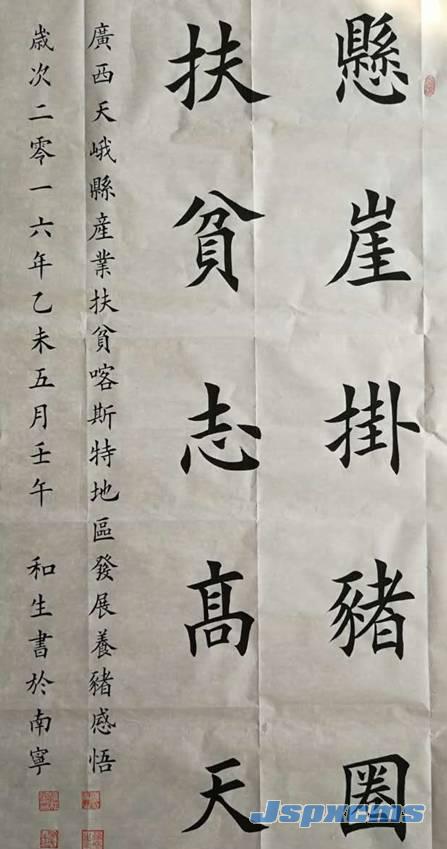 懸崖掛豬圈
扶貧志髙天
廣西天峨縣產業扶貧喀斯特地區發展養豬感悟
歲次二零一六年乙未五月壬午 和生書於南寧
Jspxcms